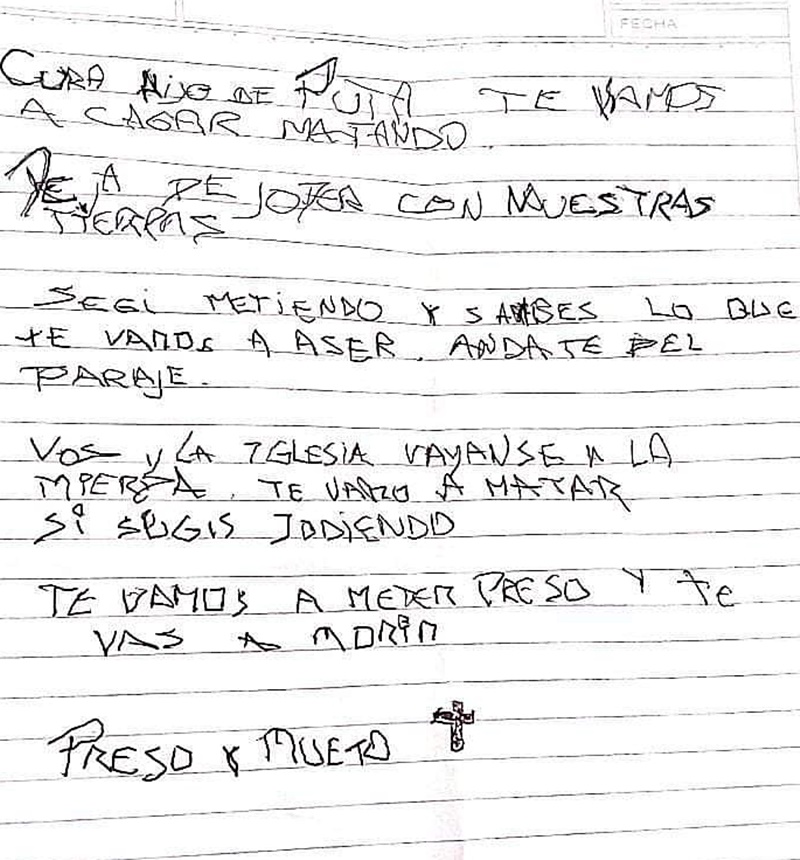 FECHA
CURA HIJO DE PUTA TE VAMOS
A CAGAR MATANDO.
DEJA DE JOTER CON NUESTRAS
TIERRAS
SEGI METIENDO Y SABES LO QUE
TE VAMOS A ASER. ANDATE DEL
PARAJE.
VOS Y LA IGLESIA VAYANSE A LA
MIERDA. TE VAMO A MATAR
SI SEGIS JODIENDO
TE VAMOS A METER PRESO Y TE
VAS A MORIR
PRESO Y MUETO